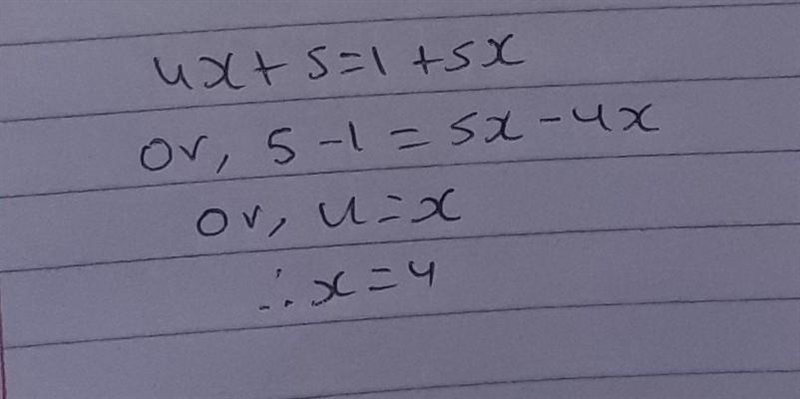 4x+5=1+5x
or, 5-1=5x-4x
or, 4=x
∴x=4